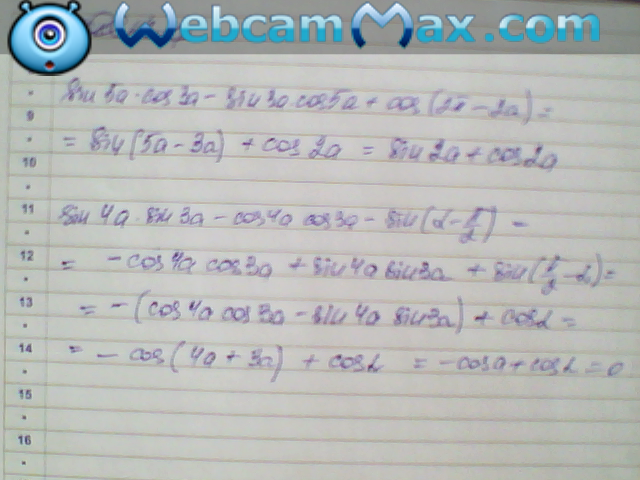 WebcamMax.com
sin 5a·cos3a − sin3a cos5a + cos(2π − 2a) =
9
= sin(5a − 3a) + cos 2a = sin 2a + cos2a
10
11
sin 4a · sin 3a − cos4a cos3a − sin(α − π/2) =
12
= −cos4a cos3a + sin4a sin3a + sin(π/2 − α) =
13
= −(cos4a cos3a − sin4a sin3a) + cosα =
14
= − cos(4a + 3a) + cosα = −cosa + cosα = 0
15
16